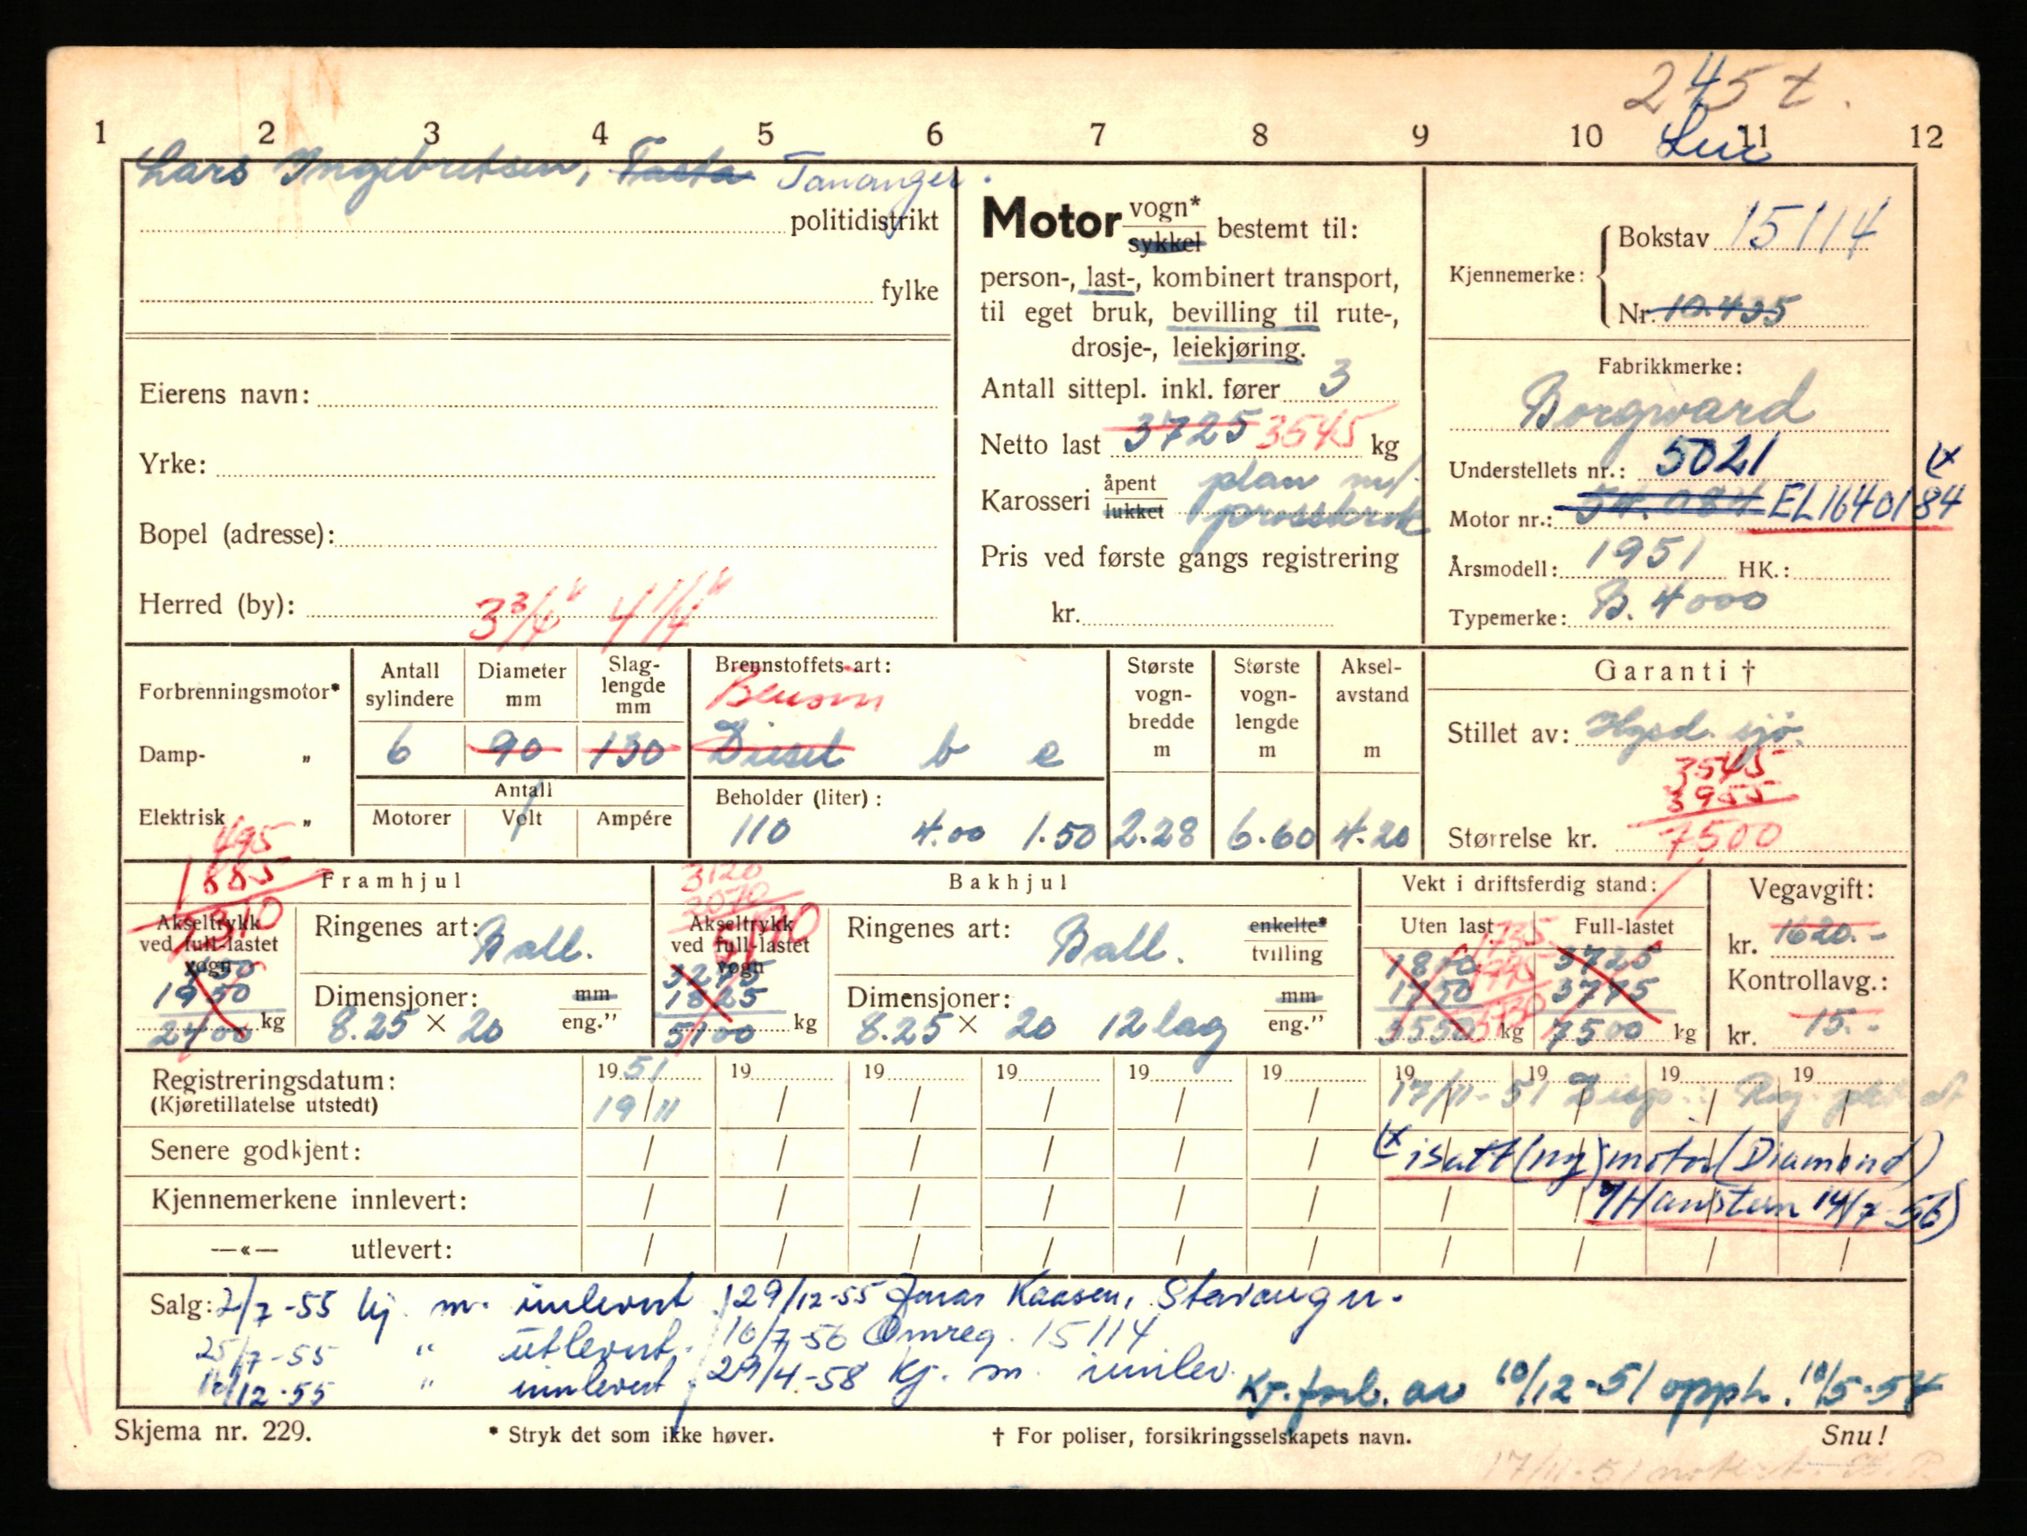 245 t.
1 2 3 4 5 6 7 8 9 10 11 12
Lars Ingebretsen, Tasta Tananger.
politidistrikt
fylke
Eierens navn:
Yrke:
Bopel (adresse):
Herred (by): 3 3/4" 4 1/4"
Motor vogn* sykkel bestemt til:
person-, last-, kombinert transport,
til eget bruk, bevilling til rute-,
drosje-, leiekjøring.
Antall sittepl. inkl. fører 3
Netto last 3725 3545 kg
Karosseri åpent lukket plan m/
Pris ved første gangs registrering
kr.
Kjennemerke: Bokstav 15114
Nr. 10.435
Fabrikkmerke:
Borgward
Understellets nr.: 5021 (x
Motor nr.: 54.084 EL1640184
Årsmodell: 1951 HK.:
Typemerke: B. 4000
Forbrenningsmotor*
Damp- „
Elektrisk „
Antall sylindere
6
Diameter mm
90
Slag-lengde mm
130
Antall
Motorer Volt Ampére
Brennstoffets art:
Bensin
Diesel b e
Beholder (liter):
110 4.00 1.50
Største vogn-bredde m
2.28
Største vogn-lengde m
6.60
Aksel-avstand m
4.20
Garanti †
Stillet av: Hgsd. sjø.
3545
3955
Størrelse kr. 7500
Framhjul
495
Akseltrykk ved full-lastet vogn
1950
2400 kg
Ringenes art: Ball.
Dimensjoner: mm eng.”
8.25 × 20
Bakhjul
3120
2070
Akseltrykk ved full-lastet vogn
3275
1825
5100 kg
Ringenes art: Ball. enkelte* tvilling
Dimensjoner: mm eng.”
8.25 × 20 12 lag
Vekt i driftsferdig stand:
Uten last
1800 1735
1750 1995
3550 3730 kg
Full-lastet
3725
3775
7500 kg
Vegavgift:
kr. 1620.-
Kontrollavg.:
kr. 15.-
Registreringsdatum: 1951 19 19 19 19 19 19 19 19 19
(Kjøretillatelse utstedt) 19/11 17/11-51 Disp.: Reg.
Senere godkjent: (x isatt (ny) motor (Diamond)
Kjennemerkene innlevert: 14/7-56)
—«— utlevert:
Salg: 2/7-55 kj. m. innlevert / 29/12-55 Jonas Kaasen, Stavanger.
25/7-55 " utlevert. / 16/7-56 Omreg. 15114
12-55 " innlevert / 29/4-58 Kj. m. innlev.
Kj.forb. av 10/12-51 opph. 10/5-54
Skjema nr. 229. * Stryk det som ikke høver. † For poliser, forsikringsselskapets navn. Snu!
17/11-51